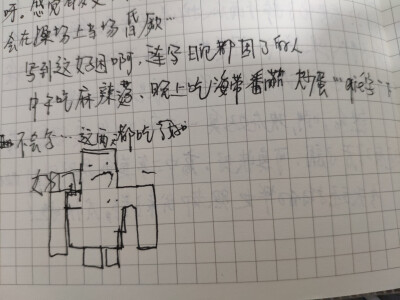 呀。感觉
会在操场上当场昏厥…
写到这好困啊，连写日记都困了的人
中午吃麻辣烫、晚上吃海带番茄炒蛋…
不会写…这两天都吃了